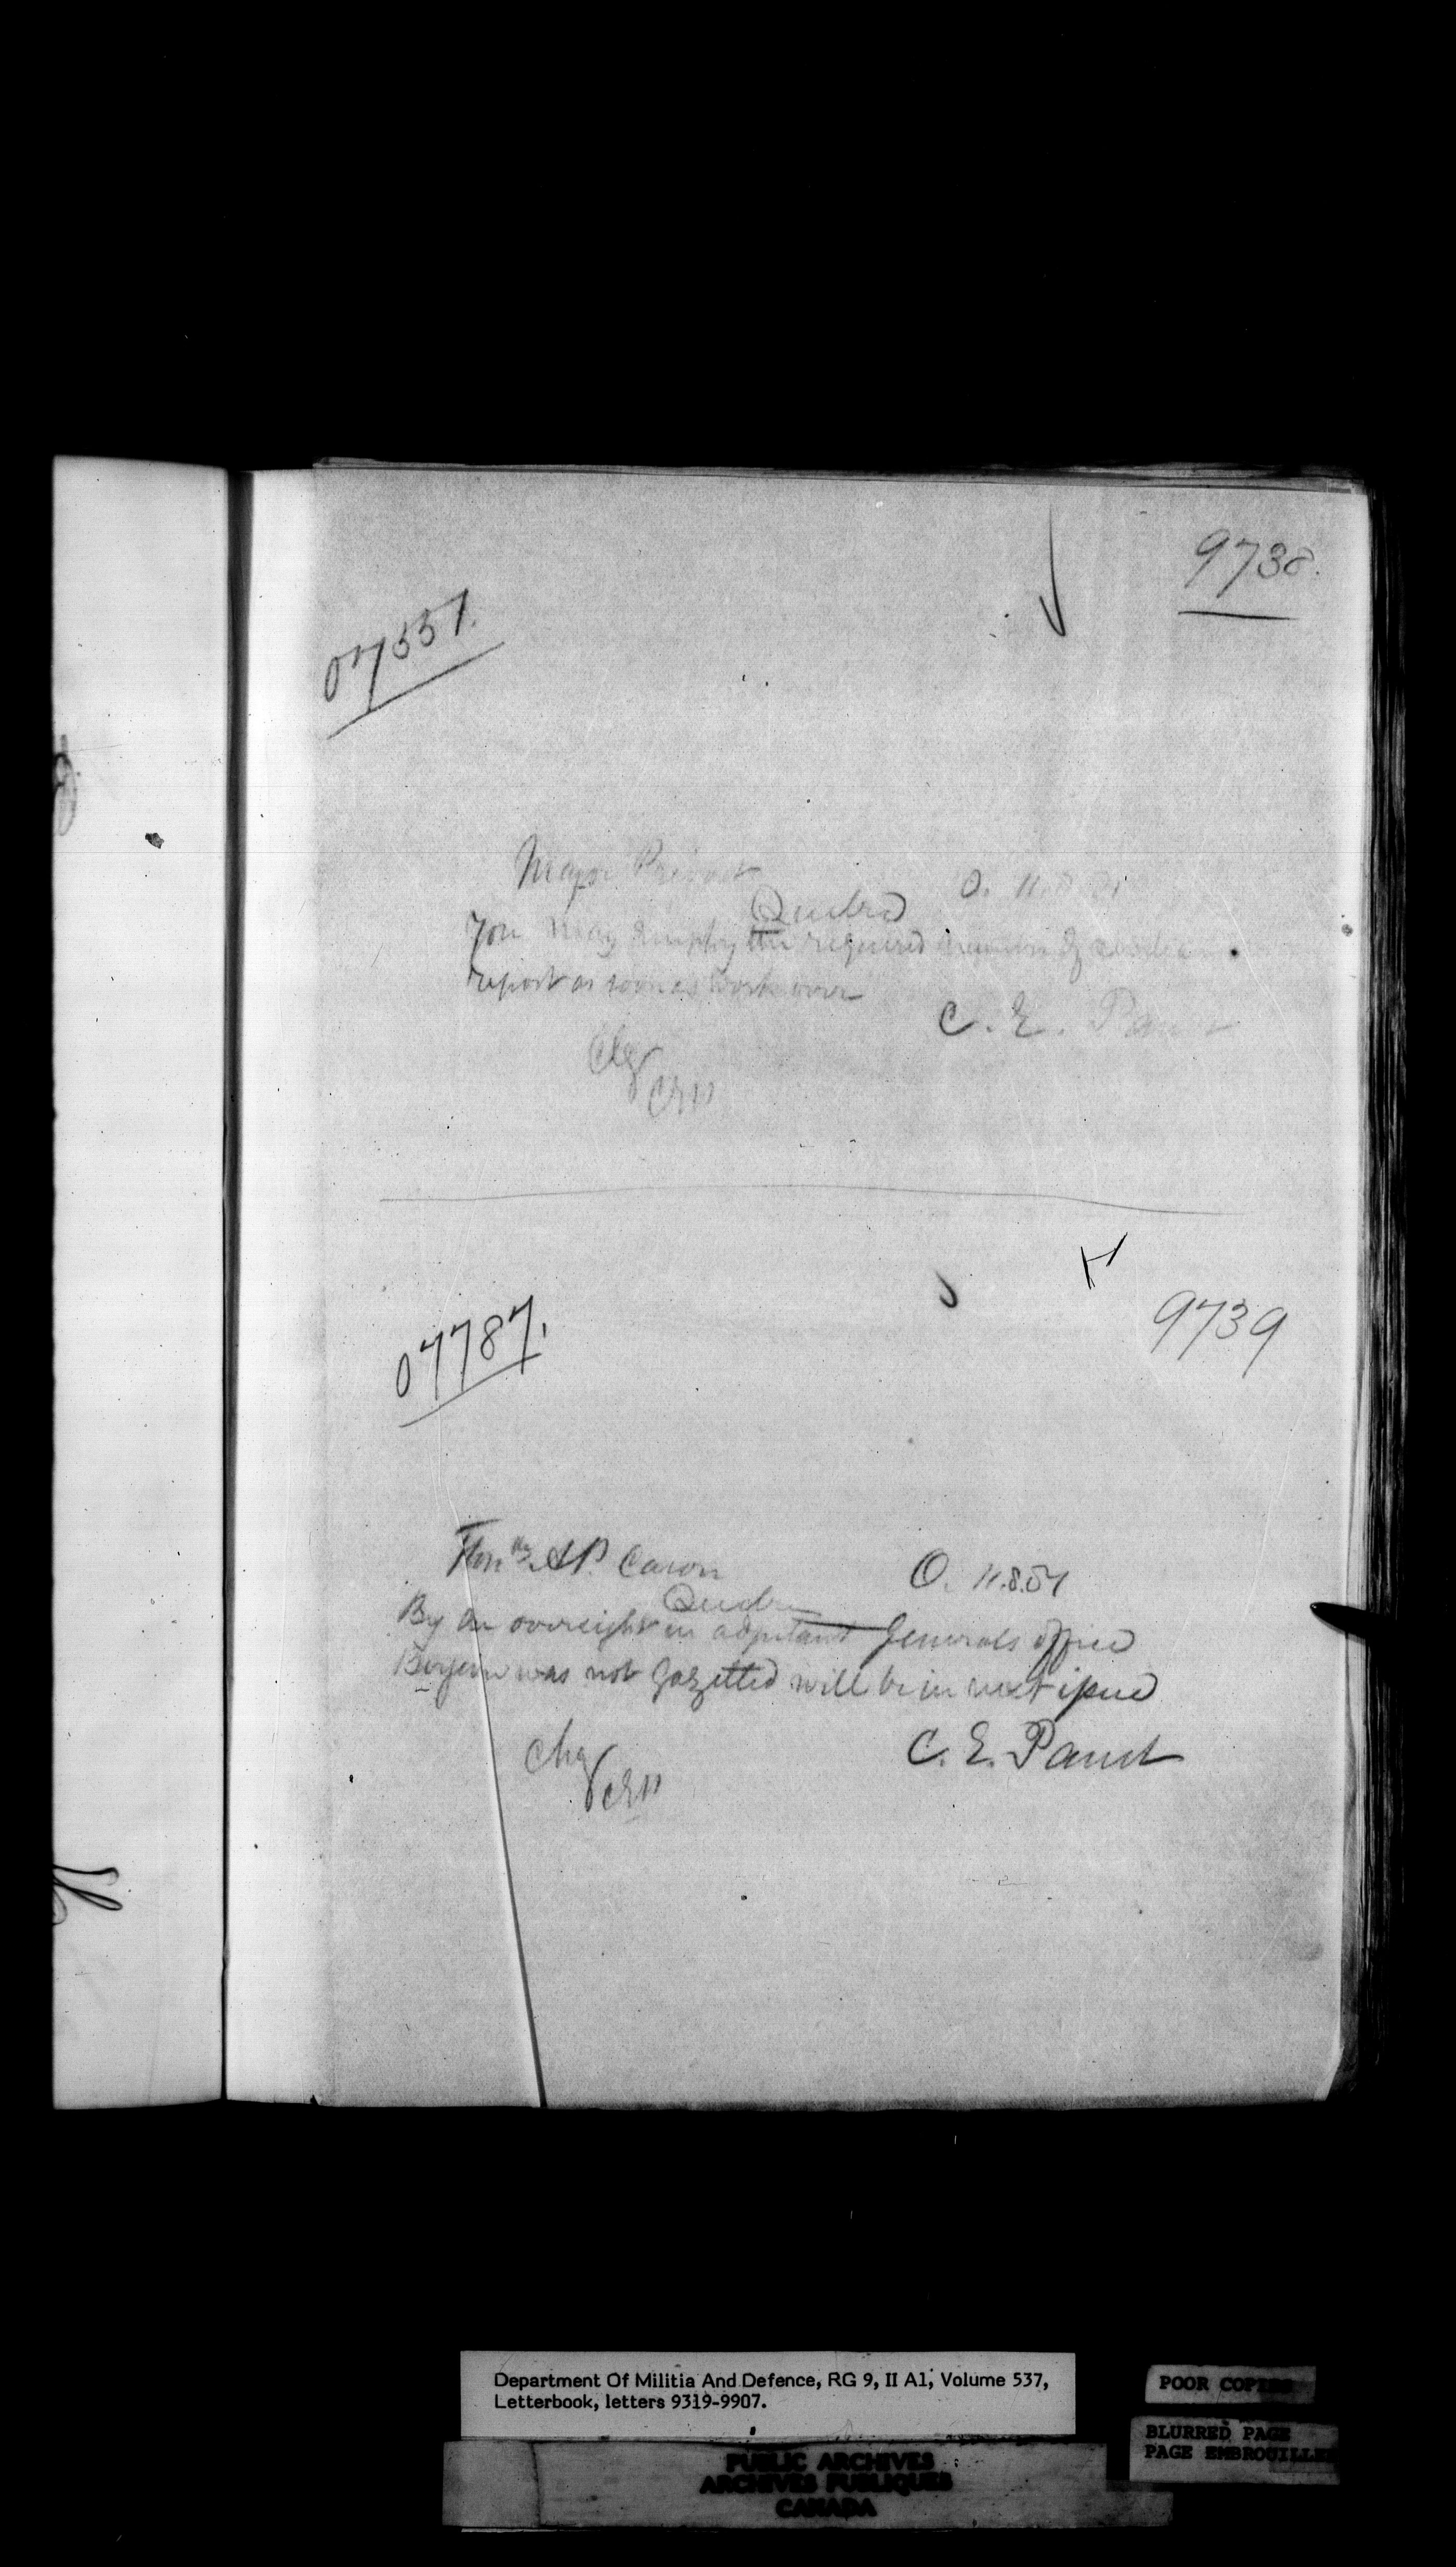 9738.
07551.
Major Prevost
Quebec O. 11.8.81
You may employ the required number of
report as soon as work over
C. E. Panet
Chg
CEP
9739
07787.
Honble A.P. Caron
Quebec O. 11.8.81
By an oversight in adjutant Generals office
was not gazetted will be in next issue
C. E. Panet
Chg
CEP
Department Of Militia And Defence, RG 9, II A1, Volume 537,
Letterbook, letters 9319-9907.
POOR COPIES
BLURRED PAGE
PAGE EMBROUILLEE
PUBLIC ARCHIVES
ARCHIVES PUBLIQUES
CANADA